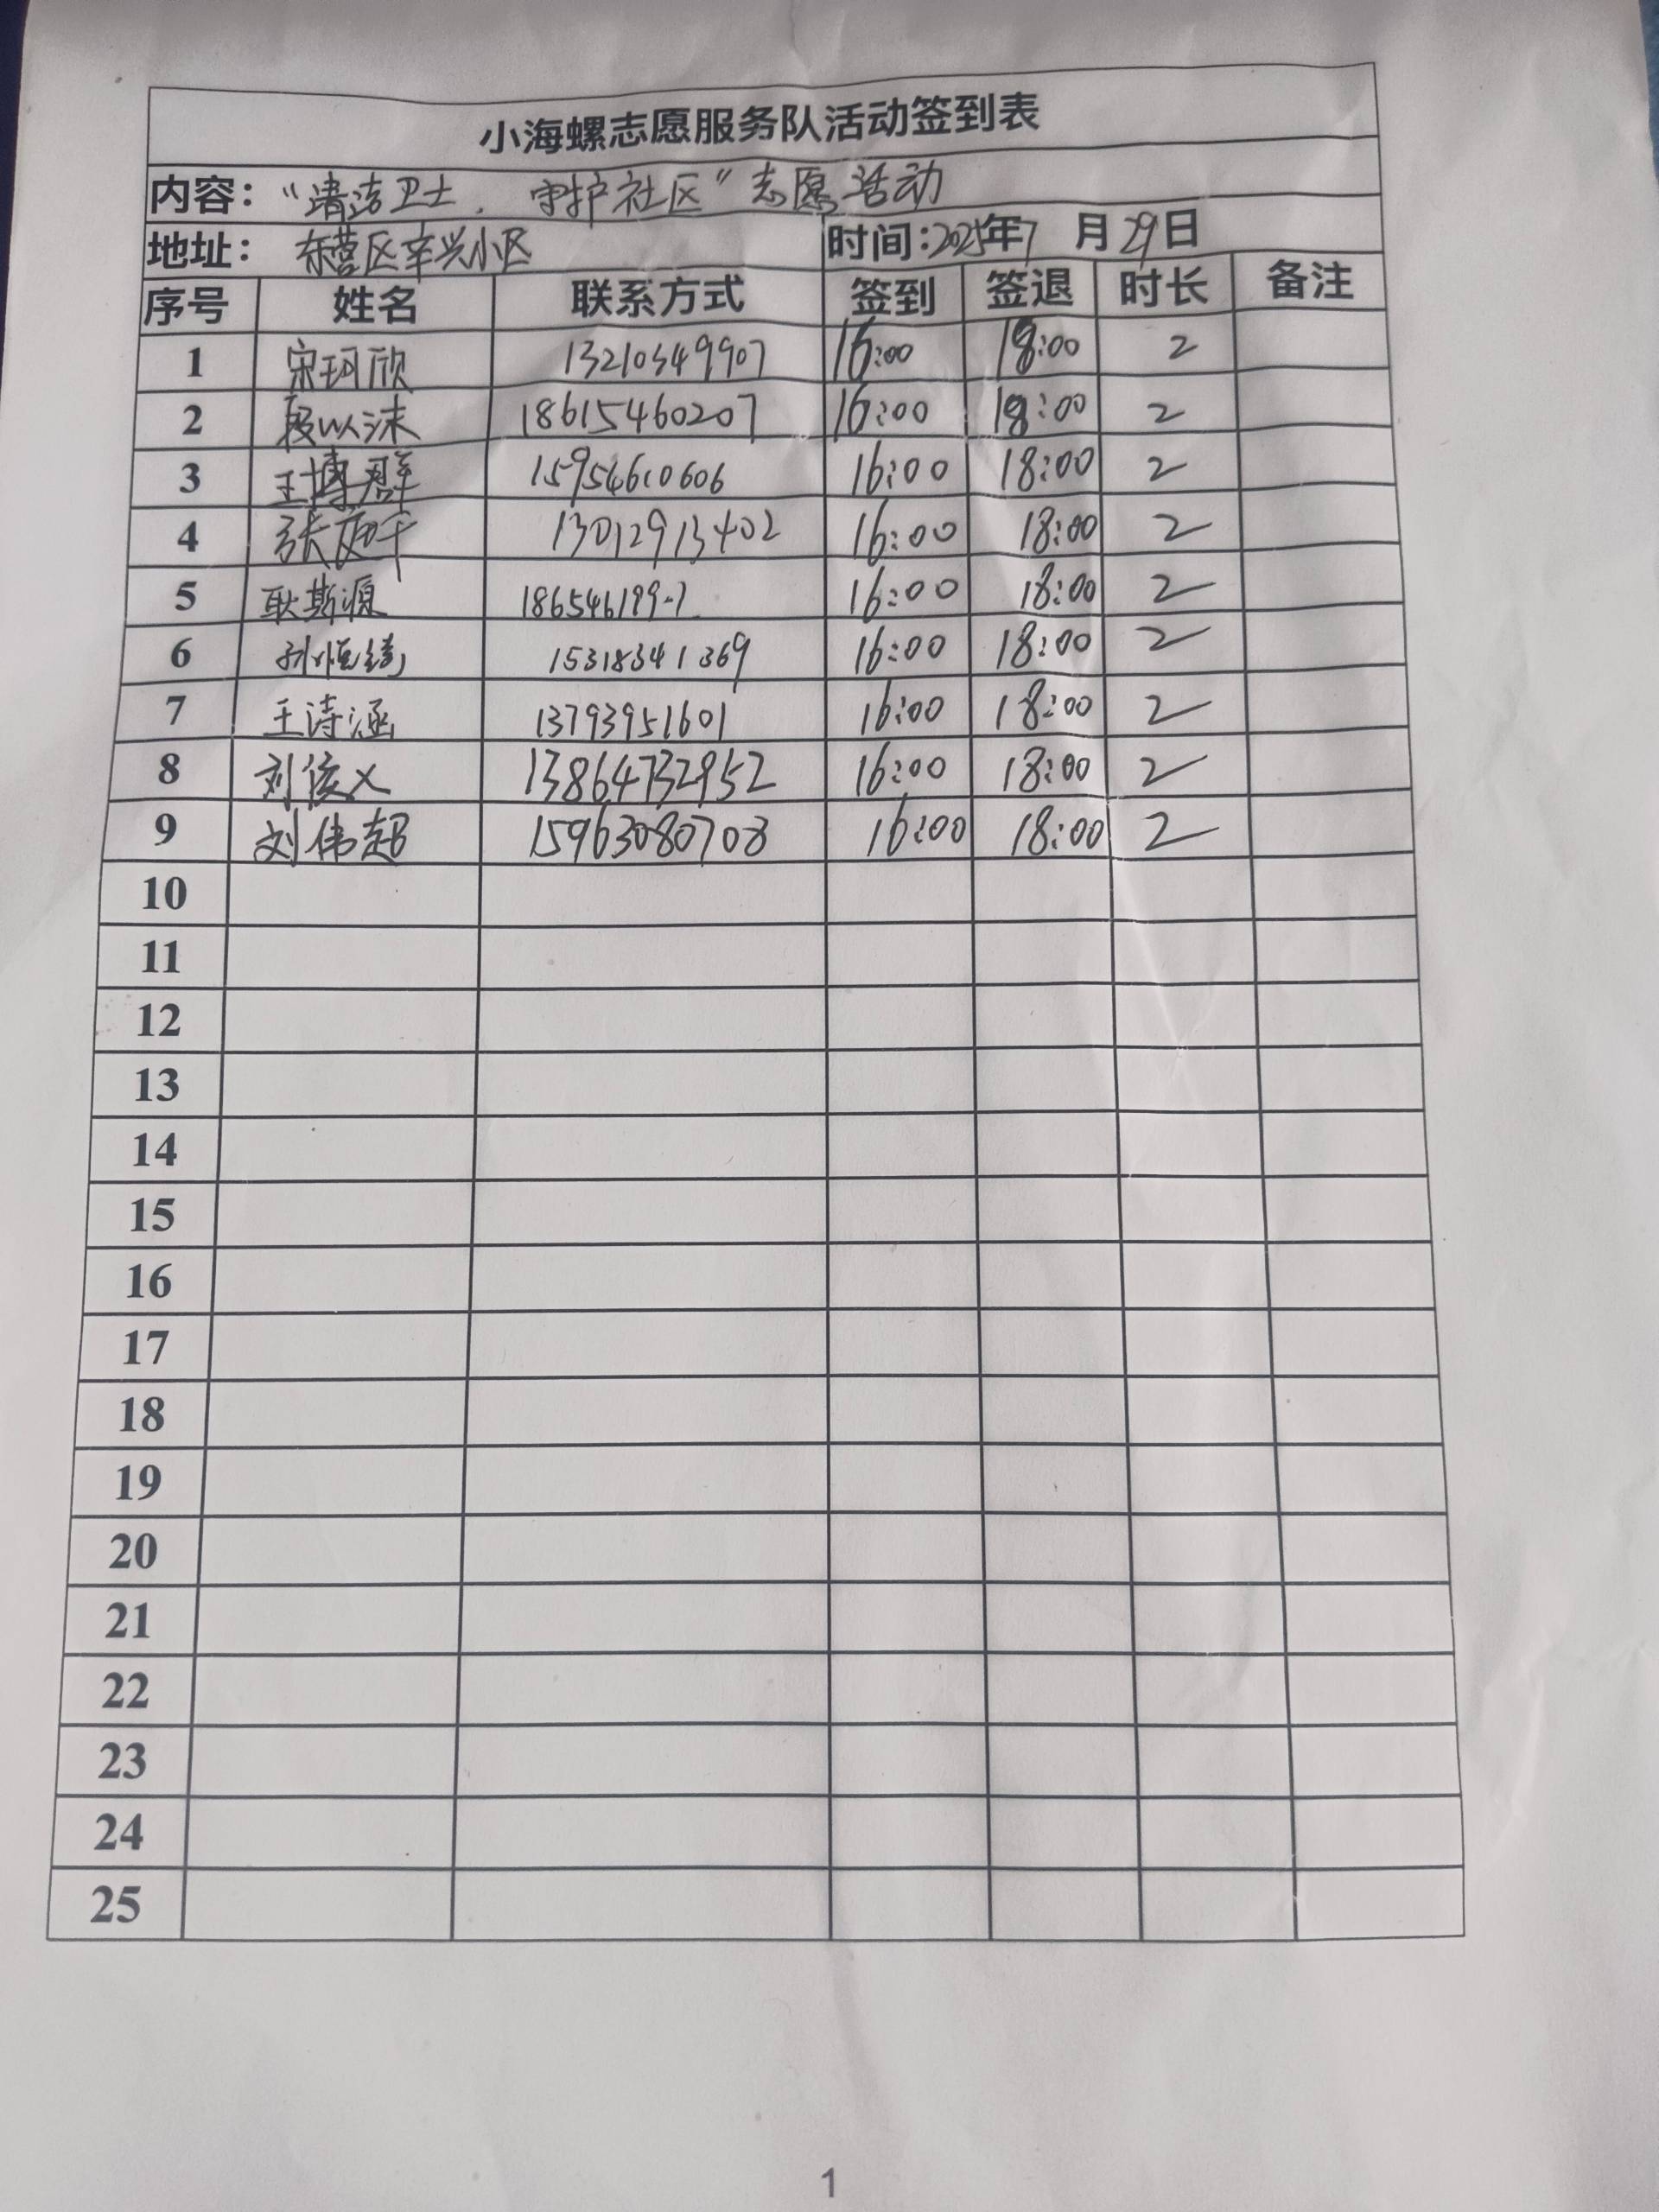 小海螺志愿服务队活动签到表
内容："清洁卫士，守护社区"志愿活动
地址：东营区辛兴小区 时间:2025年7月29日
序号 姓名 联系方式 签到 签退 时长 备注
1 宋珂欣 13210349907 16:00 18:00 2
2 段以沫 18615460207 16:00 18:00 2
3 王博群 15954610606 16:00 18:00 2
4 张 13012913402 16:00 18:00 2
5 耿斯源 16:00 18:00 2
6 15318341369 16:00 18:00 2
7 王诗涵 13793951601 16:00 18:00 2
8 刘俊义 13864732952 16:00 18:00 2
9 刘伟超 15963080708 16:00 18:00 2
10
11
12
13
14
15
16
17
18
19
20
21
22
23
24
25
1